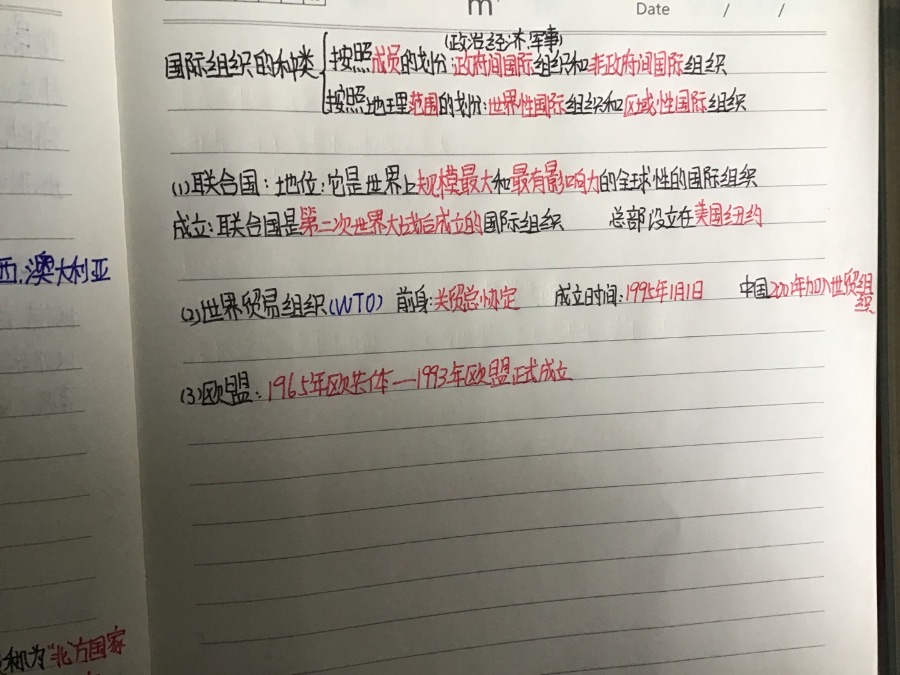 m
Date / /
(政治.经济.军事)
国际组织的种类 按照成员的划分:政府间国际组织和非政府间国际组织
按照地理范围的划分:世界性国际组织和区域性国际组织
(1)联合国:地位:它是世界上规模最大和最有影响力的全球性的国际组织
成立:联合国是第二次世界大战后成立的国际组织 总部设立在美国纽约
西.澳大利亚
(2)世界贸易组织(WTO) 前身:关贸总协定 成立时间:1995年1月1日 中国2001年加入世贸组
织
(3)欧盟:1965年欧共体—1993年欧盟正式成立
称为"北方国家